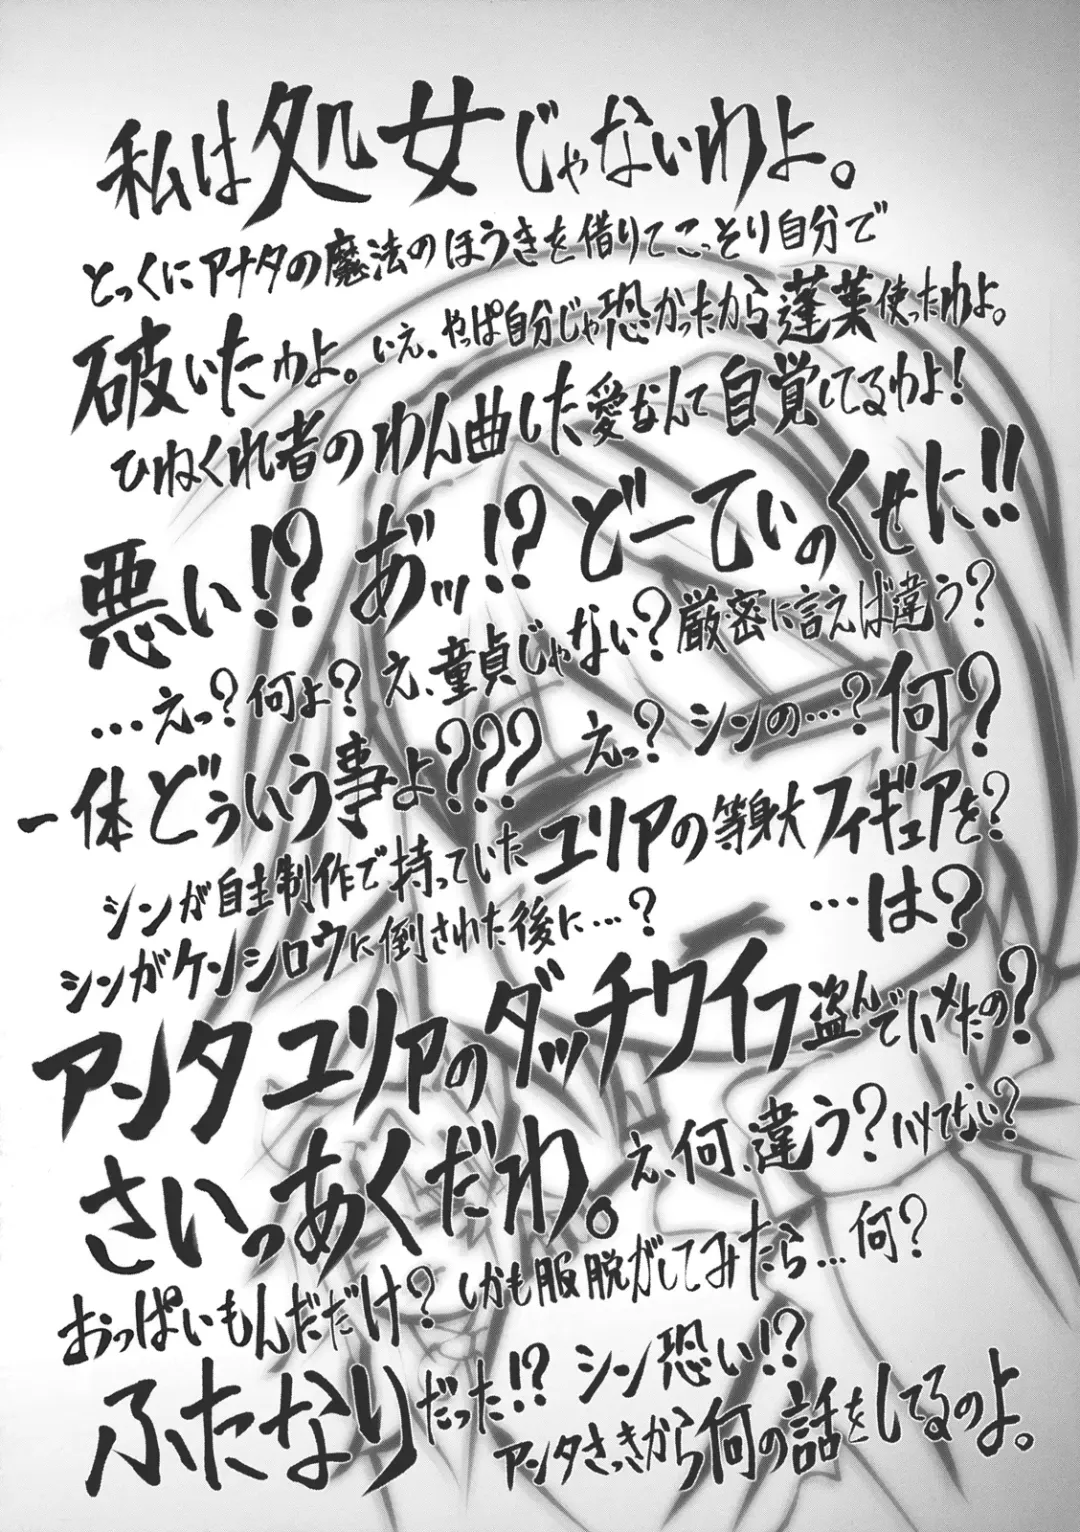 私は処女じゃないわよ。
とっくにアナタの魔法のほうきを借りてこっそり自分で
破いたわよ。いえ、やっぱ自分じゃ恐かったから蓬莱使ったわよ。
ひねくれ者のわん曲した愛なんて自覚してるわよ!
悪い!? あ゛ッ!? どーてぃのくせに!!
…えっ?何よ? え、童貞じゃない?厳密に言えば違う?
一体どういう事よ??? えっ? シンの…?何?
シンが自主制作で持っていたユリアの等身大フィギュアを?
シンがケンシロウに倒された後に…? …は?
アンタユリアのダッチワイフ盗んでハメたの?
さいっあくだわ。え、何、違う?ハメてない?
おっぱいもんだだけ? しかも服脱がしてみたら…何?
ふたなりだった!? シン恐い!?
アンタさっきから何の話をしてるのよ。